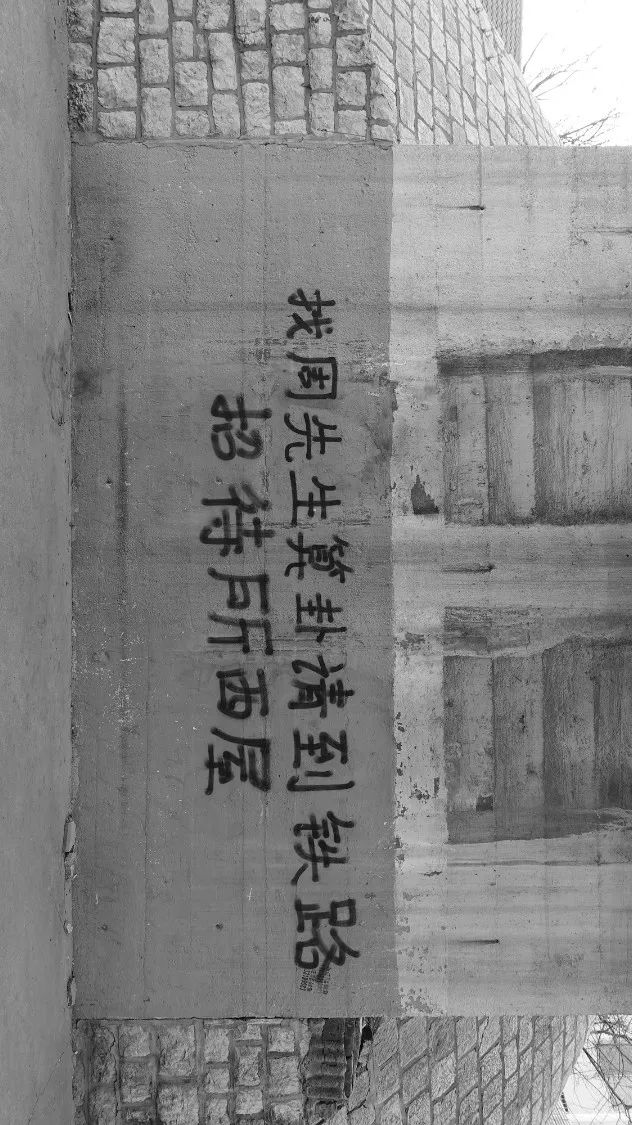 找周先生算卦请到铁路
招待所西屋